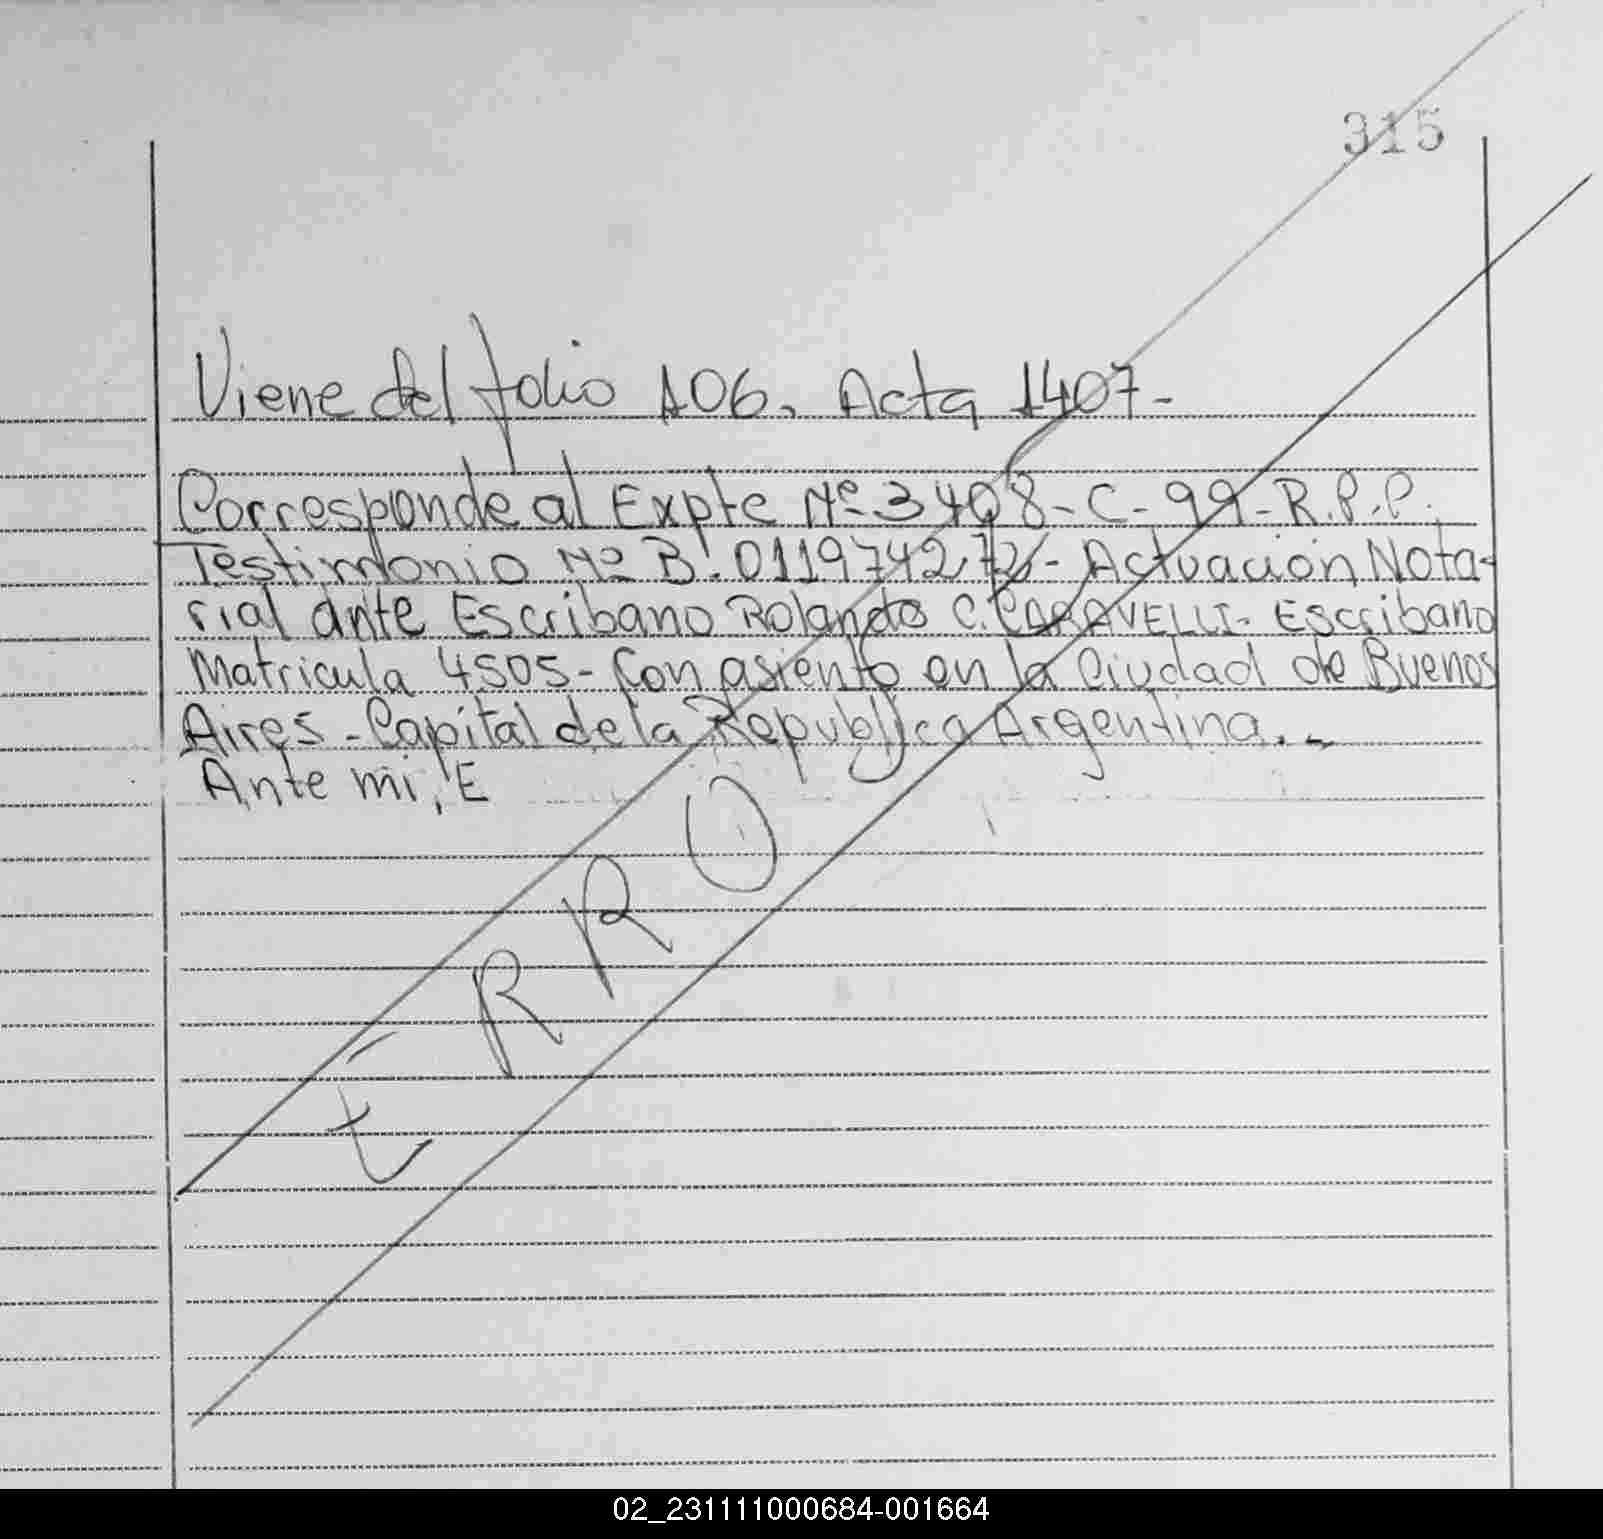 315
Viene del folio 106. Acta 1407-
Corresponde al Expte Nº 3408-C-99-R.P.P.
Testimonio Nº B. 011974272- Actuación Nota-
rial ante Escribano Rolando C. CARAVELLI- Escribano
Matricula 4505- Con asiento en la Ciudad de Buenos
Aires - Capital de la Republica Argentina. -
Ante mi, E
ERRO
02_231111000684-001664